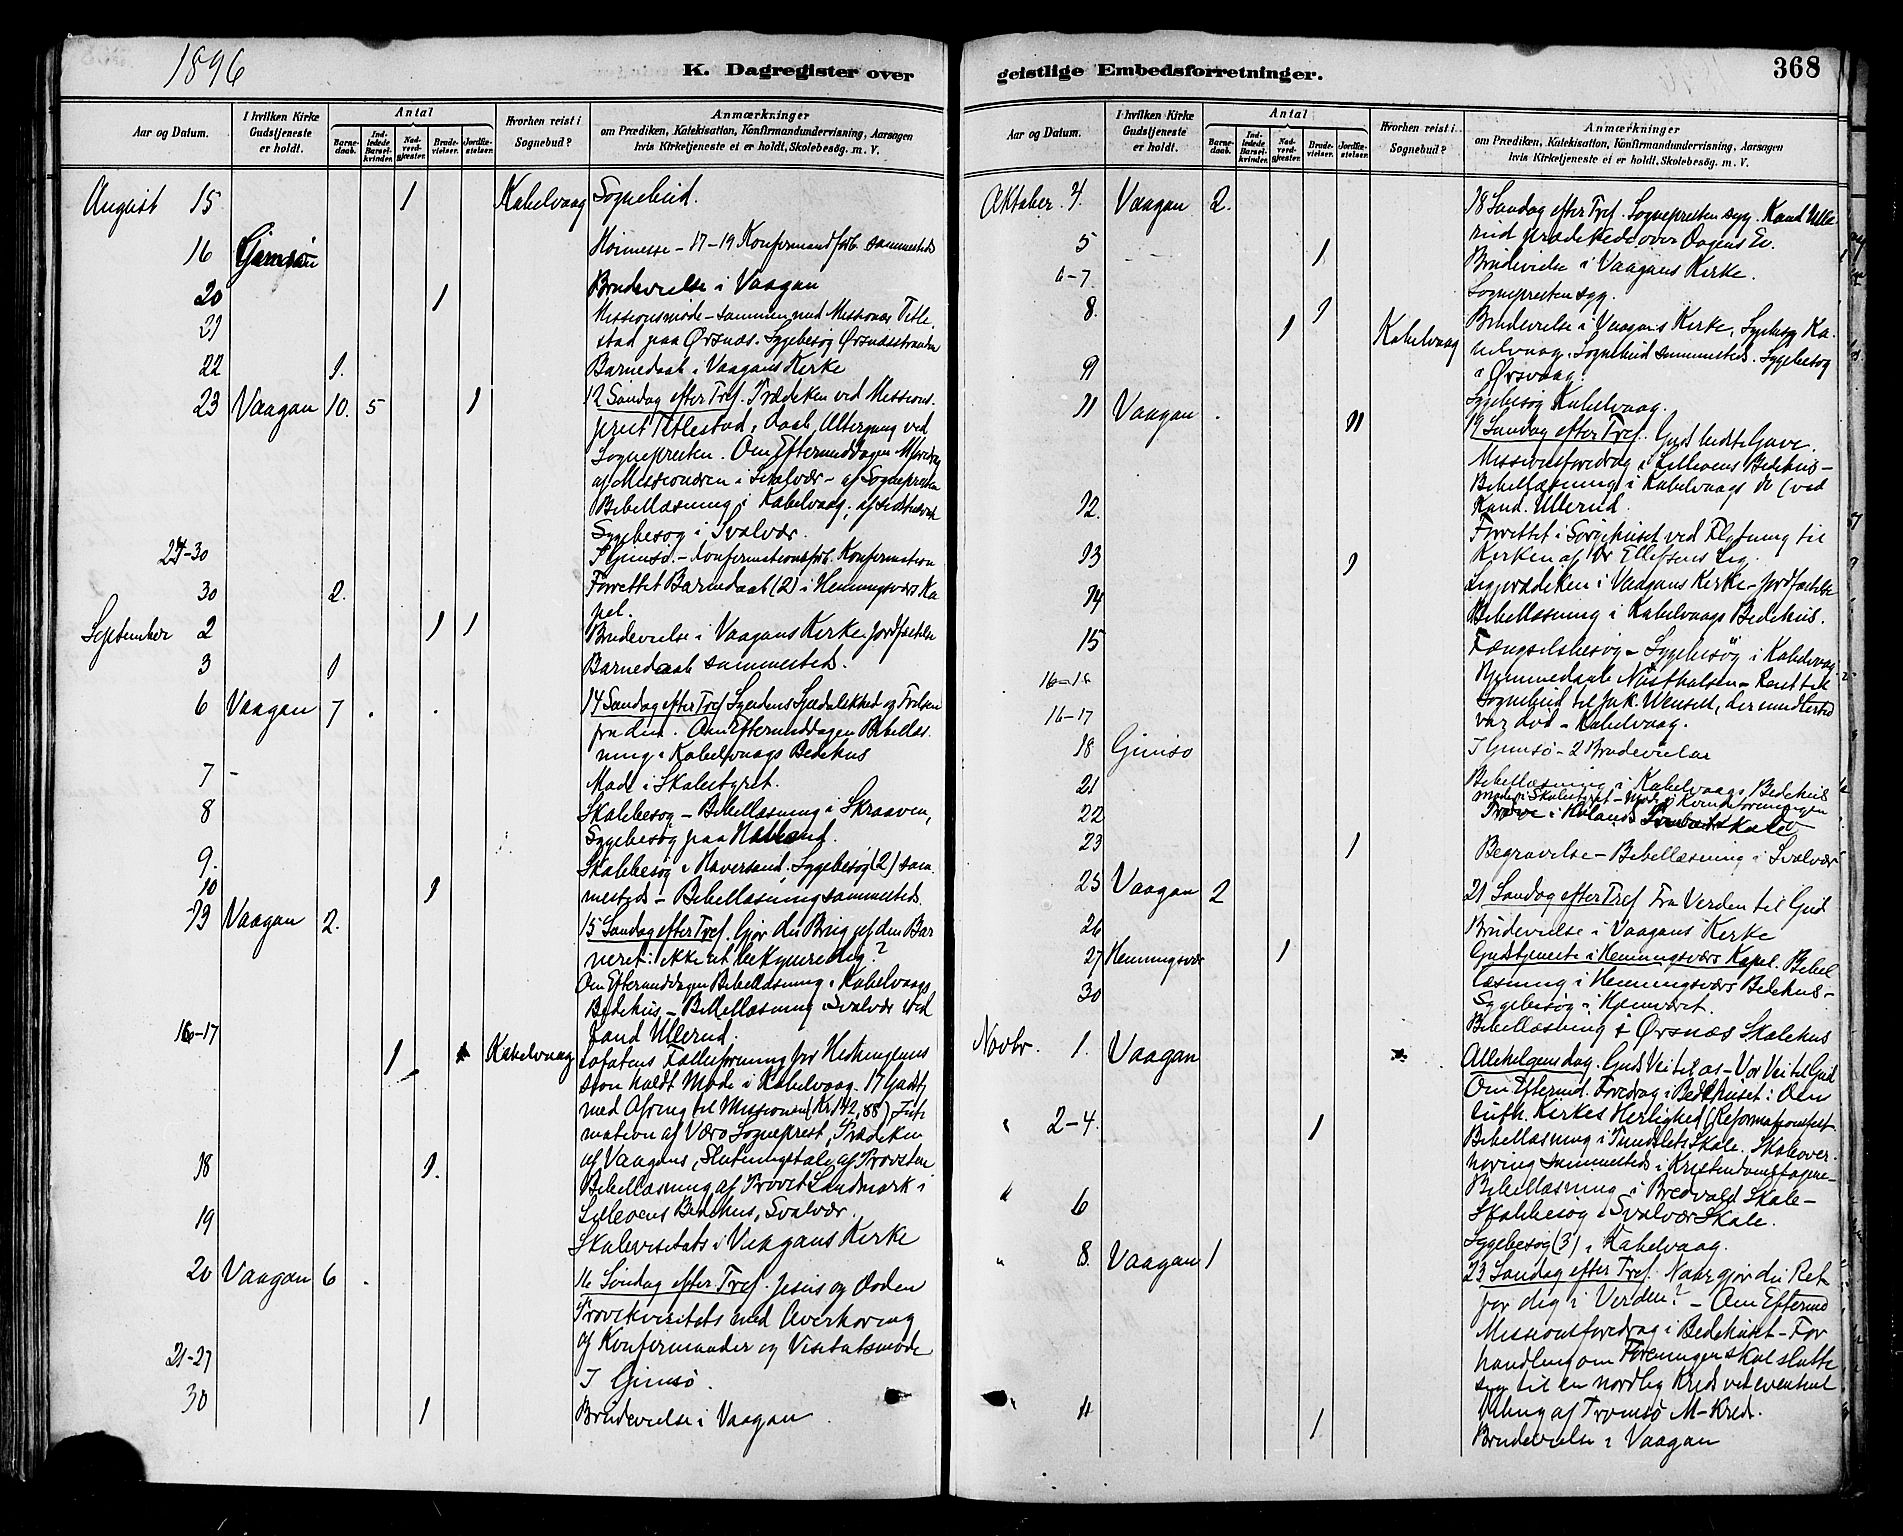 1896
K. Dagregister over
Aar og Datum.
I hvilken Kirke Gudstjeneste er holdt.
Antal
Barnedaab.
Indledede Barselkvinder.
Nadverdgjester.
Brudevielser.
Jordfæstelser.
Hvorhen reist i Sognebud?
Anmærkninger
om Prædiken, Katekisation, Konfirmandundervisning, Aarsagen
hvis Kirketjeneste ei er holdt, Skolebesög. m. V.
August 15 1 Kabelvaag Sognebud.
16 Gimsøn Høimesse – 17–19 Konfirmandforb. sammesteds
20 1 Brudevielse i Vaagan
21 Missionsmøde – sammen med Missionær Titlestad
paa Ørsnæs. Sygebesøg Ørsnæsstranden
22 1. Barnedaab i Vaagans Kirke
23 Vaagan 10. 5 1 12 Søndag efter Tref. Prædiken ved Missions
prest Titlestad, Daab, Altergang ved
Sognepresten. Om Eftermiddagen Mforedrag
af Missionæren i Svolvær – af Sognepresten
Bibellæsning i Kabelvaag,
Sygebesøg i Svolvær.
24–30 I Gimsø. – Konfirmationsforb. Konfirmation
30 2. Forrettet Barnedaab (2) i Henningsvær Ka
pel.
September 2 1 1 Brudevielse i Vaagans Kirke. Jordfæstelse
3 1 Barnedaab sammesteds.
6 Vaagan 7 . . 14 Søndag efter Tref Syndens Spedalskhed og Frelsen
fra den. Om Eftermiddagen Bibellæs
ning i Kabelvaags Bedehus
7 - Møde i Skolestyret.
8 Skolebesøg – Bibellæsning i Skraaven,
Sygebesøg paa
9. Skolebesøg i Haversand, Sygebesøg (2) sam
10 1 mesteds – Bibellæsning sammesteds.
13 Vaagan 2. 15 Søndag efter Tref. Gjør du Brug af den Bar
neret: ikke at bekymre dig?
Om Eftermiddagen Bibellæsning i Kabelvaags
Bedehus – Bibellæsning i Svolvær ved
Kand Ullerud.
16–17 1 Kabelvaag Lofotens Fællesforening for Hedningemis
sion holdt Møde i Kabelvaag. 17 Gudstj
med Ofring til Missionen (Kr 142,88) Inti
mation af Værø Sogneprest, Prædiken
af Vaagans, Slutningstale af Provsten
18 1. Bibellæsning af Provst Landmark i
Lilleoens Bedehus, Svolvær.
19 Skolevisitats i Vaagans Kirke
20 Vaagan 6 . 16 Søndag efter Tref. Jesus og Døden
Provstevisitats med Overhøring
af Konfirmander og Visitatsmøde
21–27 I Gimsø.
30 1 Brudevielse i Vaagan
geistlige Embedsforretninger.
368
Aar og Datum.
I hvilken Kirke Gudstjeneste er holdt.
Antal
Barnedaab.
Indledede Barselkvinder.
Nadverdgjester.
Brudevielser.
Jordfæstelser.
Hvorhen reist i Sognebud?
Anmærkninger
om Prædiken, Katekisation, Konfirmandundervisning, Aarsagen
hvis Kirketjeneste ei er holdt, Skolebesög. m. V.
Oktober. 4. Vaagan 2. 18 Søndag efter Tref. Sognepresten syg. Kand Ulle
rud prædikede over Dagens Ev.
5 1 Brudevielse i Vaagans Kirke.
6–7 Sognepresten syg.
8. 1 1 Kabelvaag Brudevielse i Vaagans Kirke, Sygebesøg Ka
belvaag. Sognebud sammesteds. Sygebesøg
i Ørsvaag.
9 Sygebesøg Kabelvaag.
11 Vaagan . 11 19 Søndag efter Tref. Guds bedste Gave.
Missionsforedrag i Lilleoens Bedehus –
Bibellæsning i Kabelvaags do (ved
Kand. Ullerud.
12. Forrettet i Sørgehuset ved Flytning til
Kirken af Dr Ellefsens Lig.
13 1 Ligprædiken i Vaagans Kirke – Jordfæstelse
14 Bibellæsning i Kabelvaags Bedehus.
15 Fængselsbesøg – Sygebesøg i Kabelvaag
Hjemmedaab – Reist til
Sognebud til Jak. der imidlertid
var død – Kabelvaag.
16–17
18 Gimsø I Gimsø – 2 Brudevielser
21 Bibellæsning i Kabelvaags Bedehus
22 Møde i Skolestyret – Møde i Kvindeforeningen
Prøve i
23 1 Begravelse – Bibellæsning i Svolvær
25 Vaagan 2 21 Søndag efter Tref Fra Verden til Gud
26 Brudevielse i Vaagans Kirke
27 Henningsvær 1 Gudstjeneste i Henningsvær Kapel. Bibel
læsning i Henningsværs Bedehus –
Sygebesøg i Hjemmet.
30 Bibellæsning i Ørsnæs Skolehus
Novbr. 1. Vaagan Allehelgensdag. Guds Vei til os – Vor Vei til Gud
Om Eftermid. Foredrag i Bedehuset: Den
luth. Kirkes Herlighed (Reformationsfest
" 2–4. 1 Bibellæsning i Skole. Skoleover
høring sammesteds i Kristendomsfagene –
Bibellæsning i Bredvold Skole –
" 6 Skolebesøg i Svolvær Skole.
Sygebesøg (3) i Kabelvaag.
" 8. Vaagan 1 23 Søndag efter Tref. Naar gjør du Ret
for dig i Verden? – Om Eftermid
Missionsforedrag i Bedehuset – For
handling om Foreningen skal slutte
sig til en nordlig Kreds ved eventuel
Deling af Tromsø M-Kred.
" 11 1 Brudevielse i Vaagan